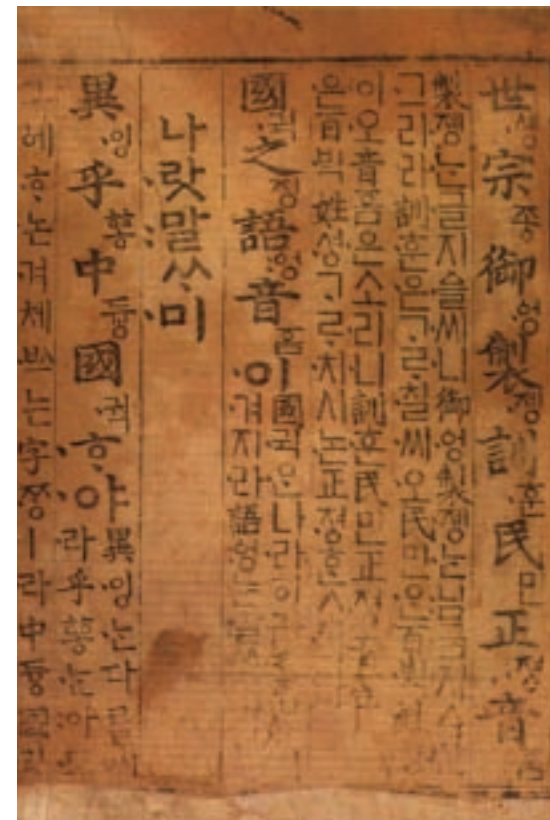 世솅宗종御엉製졩訓훈民민正졍音
製졩는글지ᅀᅳᆯ씨니御엉製졩는님금지ᅀᅳ
그리라訓훈은ᄀᆞᄅᆞ칠씨오民민ᄋᆞᆫ百ᄇᆡᆨ姓
이오音ᅙᅳᆷ은소리니訓훈民민正졍音
은百ᄇᆡᆨ姓셩ᄀᆞᄅᆞ치시논正졍ᄒᆞᆫ
國귁之징語ᅌᅥᆼ音ᅙᅳᆷ이國귁ᄋᆞᆫ나라히
겨지라語ᅌᅥᆼ는말
나랏말ᄊᆞ미
異잉乎ᅘᅩᆼ中듀ᇰ國귁ᄒᆞ야異잉ᄂᆞᆫ다ᄅᆞᆯ
라乎ᅘᅩᆼᄂᆞᆫ아
ᅌᅦᄒᆞ논겨체ᄡᅳ는字ᄍᆞᆼㅣ라中듀ᇰ國귁